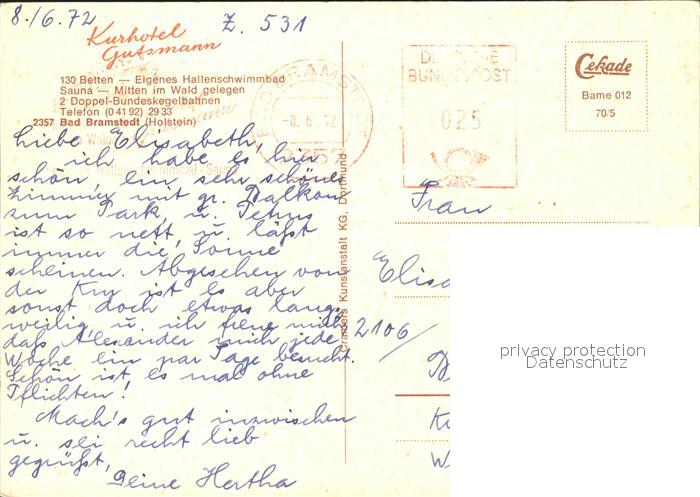 8./6.72
Z. 531
Kurhotel
Gutsmann
130 Betten — Eigenes Hallenschwimmbad
Sauna — Mitten im Wald gelegen
2 Doppel-Bundeskegelbahnen
Telefon (0 41 92) 29 33
2357 Bad Bramstedt (Holstein)
Liebe Elisabeth,
ich habe es hier
schön, ein sehr schönes
Zimmer mit gr. Balkon
zum Park, u.
ist so nett, u. läßt
immer die Sonne
scheinen. Abgesehen von
der Kur ist es aber
sonst doch etwas lang-
weilig, u. ich freue mich
daß Alexander mich jede
Woche ein par Tage besucht.
Schön ist, es mal ohne
Pflichten!
Mach's gut inzwischen
u. sei recht lieb
gegrüßt,
Deine Hertha
Cramers Kunstanstalt KG, Dortmund
BAD BRAMSTEDT
-8.6.72
2357
DEUTSCHE
BUNDESPOST
025
Cekade
Bame 012
70/5
Frau
Elisa
2106/
privacy protection
Datenschutz